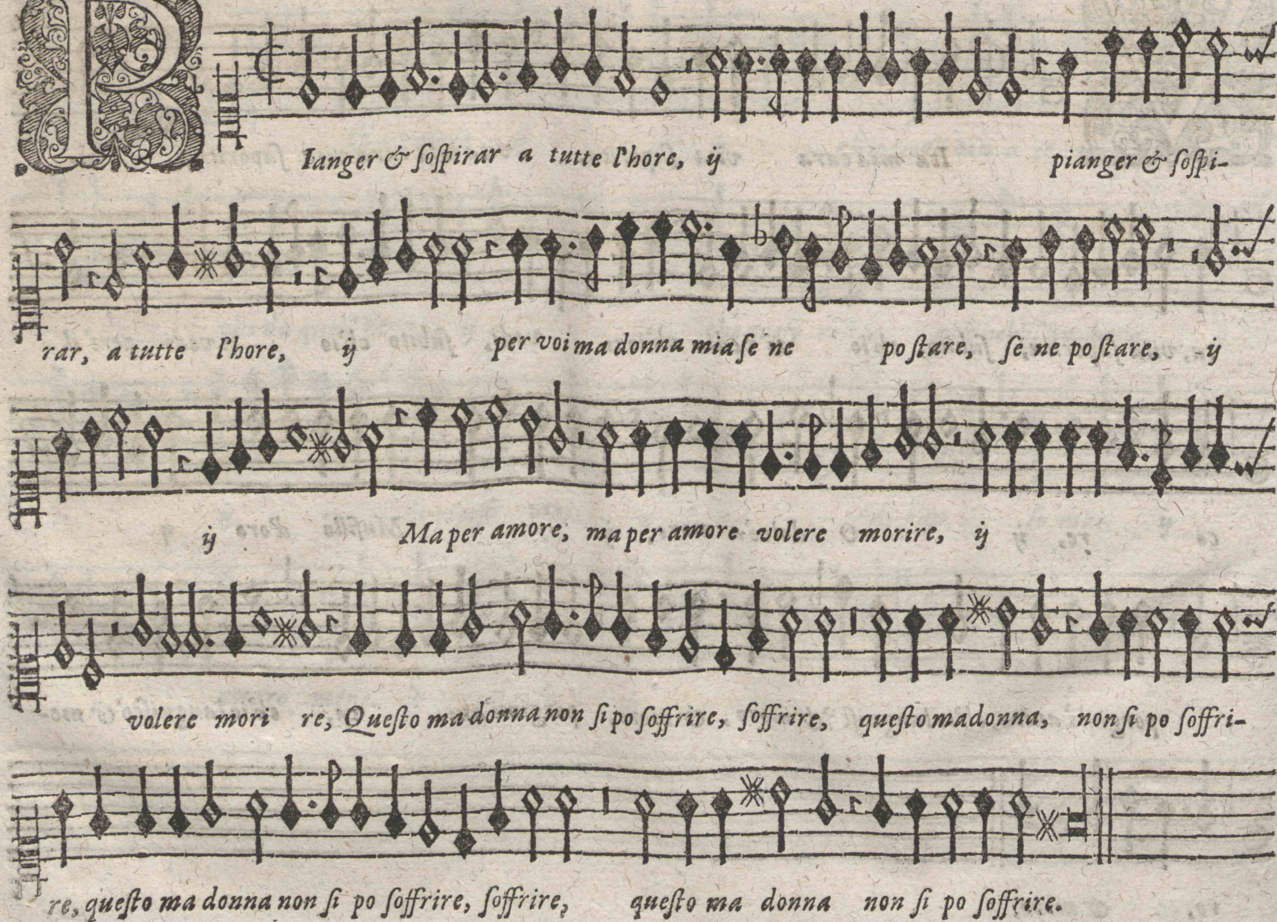 P
Ianger & ſoſpirar a tutte l'hore, ij pianger & ſoſpi-
rar, a tutte l'hore, ij per voi ma donna mia ſe ne po ſtare, ſe ne po ſtare, ij
ij Ma per amore, ma per amore volere morire, ij
volere mori re, Queſto ma donna non ſi po ſoffrire, ſoffrire, queſto madonna, non ſi po ſoffri-
re, queſto ma donna non ſi po ſoffrire, ſoffrire, queſto ma donna non ſi po ſoffrire.